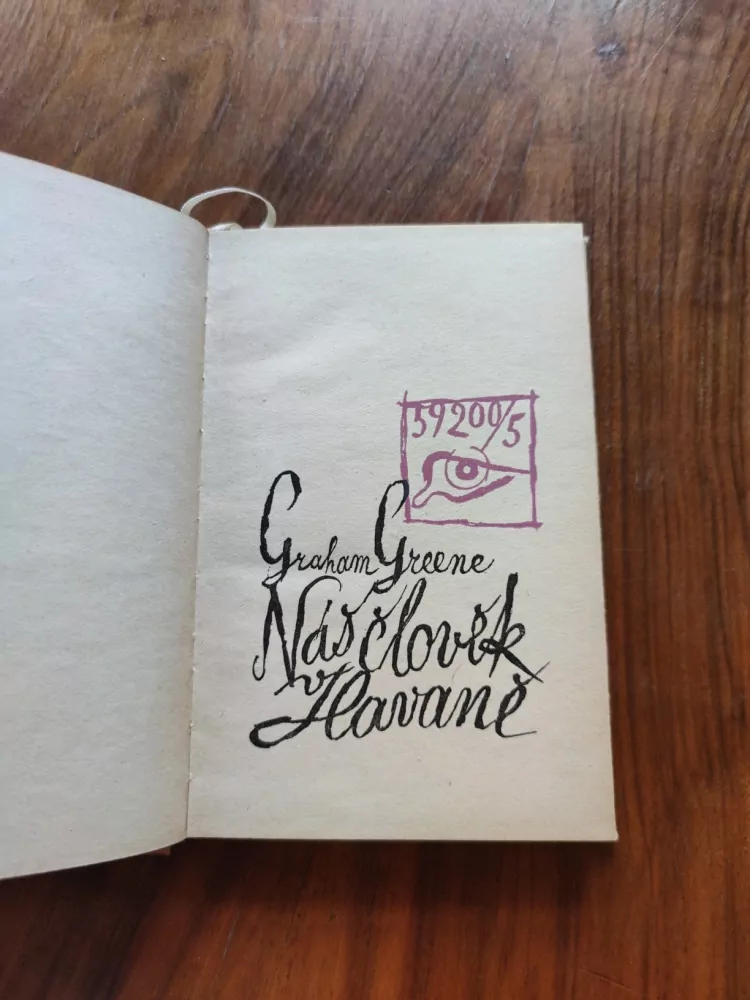 59200/5
Graham Greene
Náš člověk
v Havaně